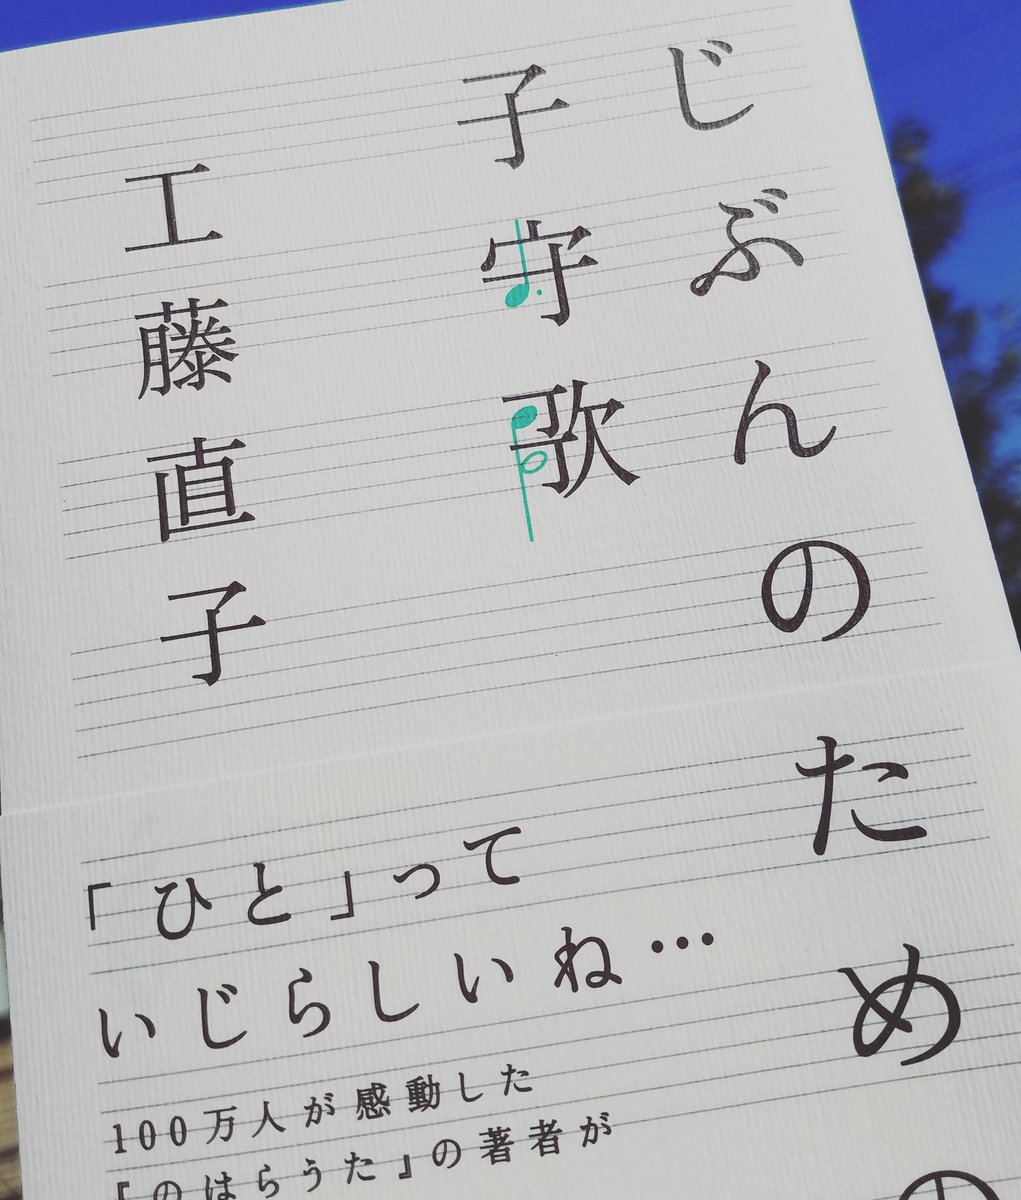 じぶんのための
子守歌
工藤直子
「ひと」って
いじらしいね…
100万人が感動した
『のはらうた』の著者が